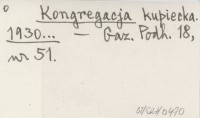 Kongregacja kupiecka.
1930... — Gaz. Podh. 18,
nr 51.